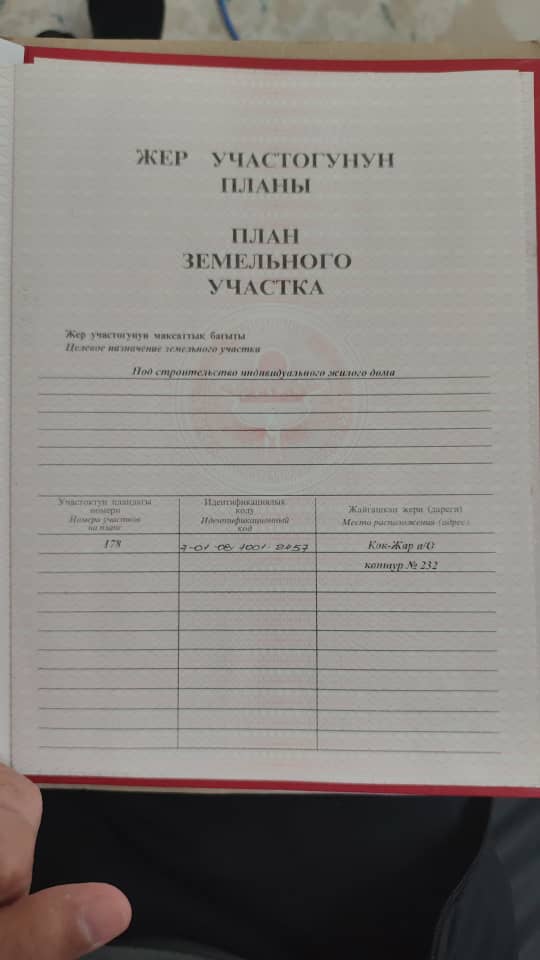 ЖЕР УЧАСТОГУНУН
ПЛАНЫ
ПЛАН
ЗЕМЕЛЬНОГО
УЧАСТКА
Жер участогунун максаттык багыты
Целевое назначение земельного участка
Под строительство индивидуального жилого дома
Участоктун пландагы
номери
Номера участков
на плане
Идентификациялык
коду
Идентификационный
код
Жайгашкан жери (дареги)
Место расположения (адрес).
178
7-01-08-1001-
Кок-Жар а/О
контур № 232